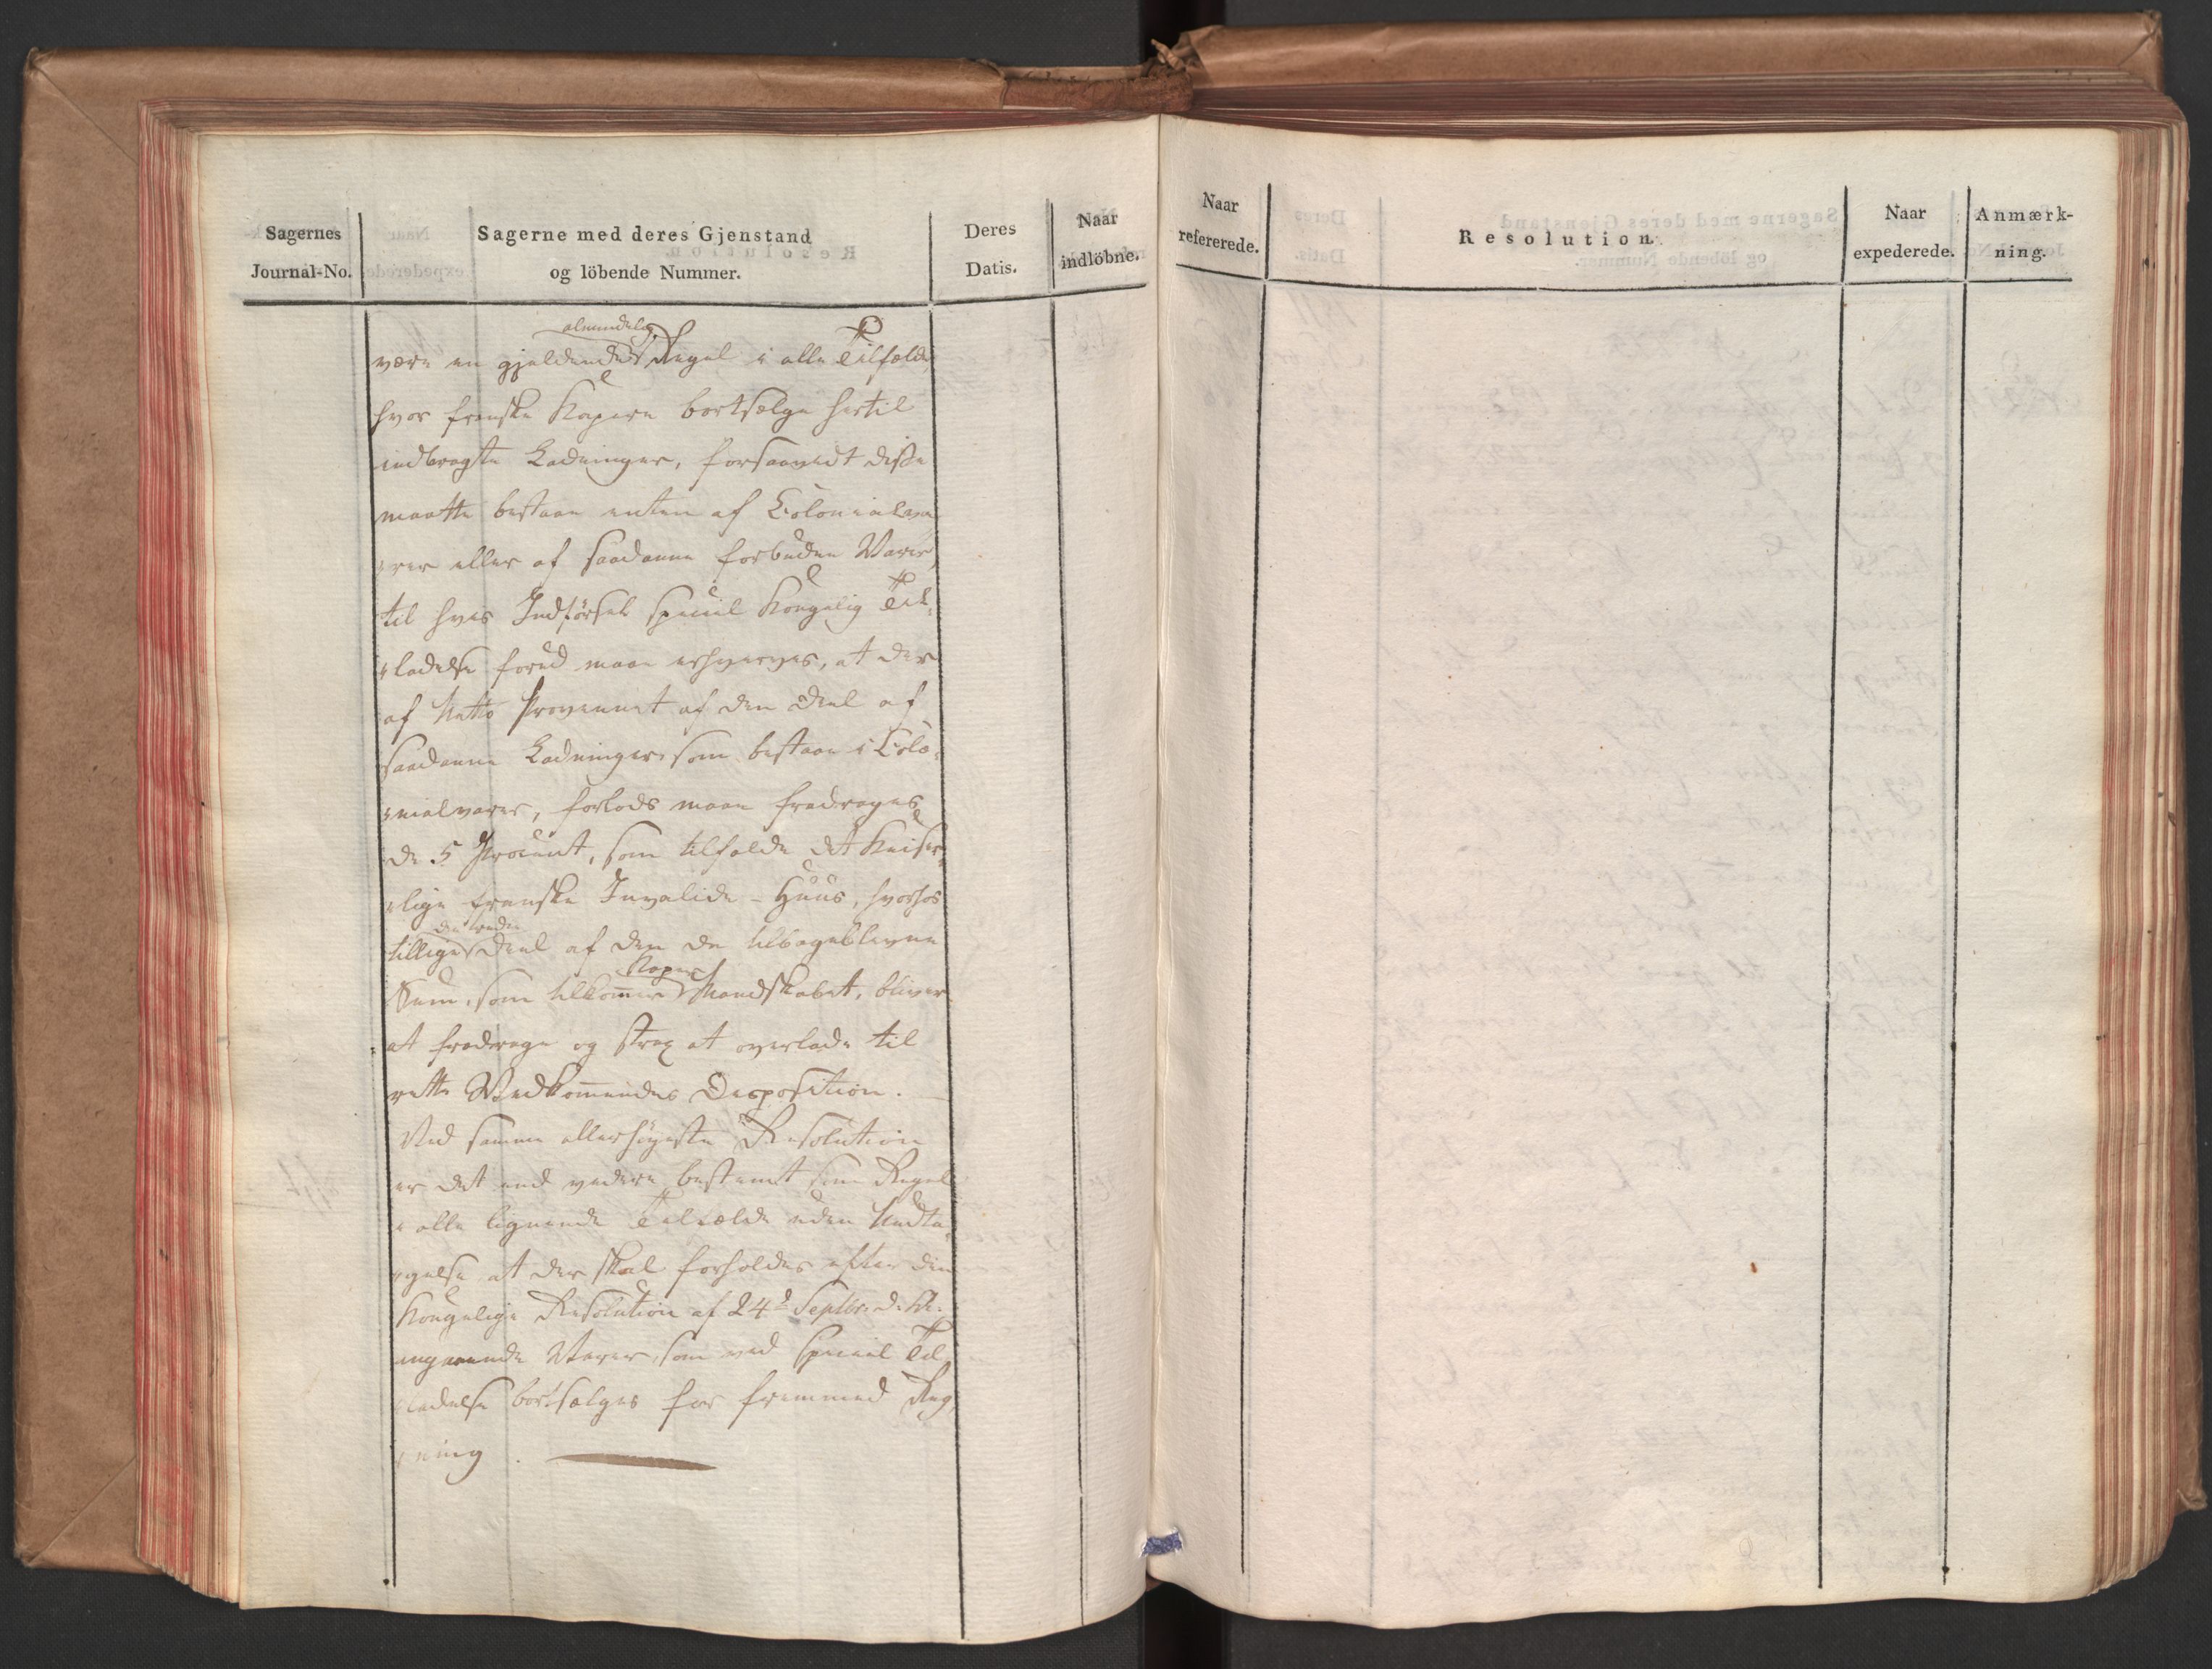 Sagernes
Journal-No.
Sagerne med deres Gjenstand
og löbende Nummer.
Deres
Datis.
Naar
indlöbne.
Naar
refererede.
Resolution.
Naar
expederede.
Anmærk-
ning.
almindelig
være en gjeldende Regel i alle Tilfælde,
hvor franske Kapere bortsælge hertil
indbragte Ladninger, forsaavidt disse
maatte bestaae enten af Colonialva
rer eller af saadanne forbudne Varer,
til hvis Indførsel speciel Kongelig Til-
ladelse forud maae erhverves, at der
af Netto Provenuet af den Deel af
saadanne Ladninger, som bestaae i Colo-
nialvarer, forlods maae fradrages
de 5 Procent, som tilfalde det Keiser-
lige franske Invalide-Huus, hvorhos
den tredie
tillige Deel af den da tilbageblevne
Kaper
Sum, som tilkommer Mandskabet, bliver
at fradrage og strax at overlade til
rette Vedkommendes Disposition.
Ved samme allerhøyeste Resolution
er det end videre bestemt som Regel
i alle lignende Tilfælde uden Undta-
gelse, at der skal forholdes efter den
Kongelige Resolution af 24de Septbr. d. A.
angaaende Varer, som ved speciel Til
ladelse bortsælges for fremmed Reg
ning.